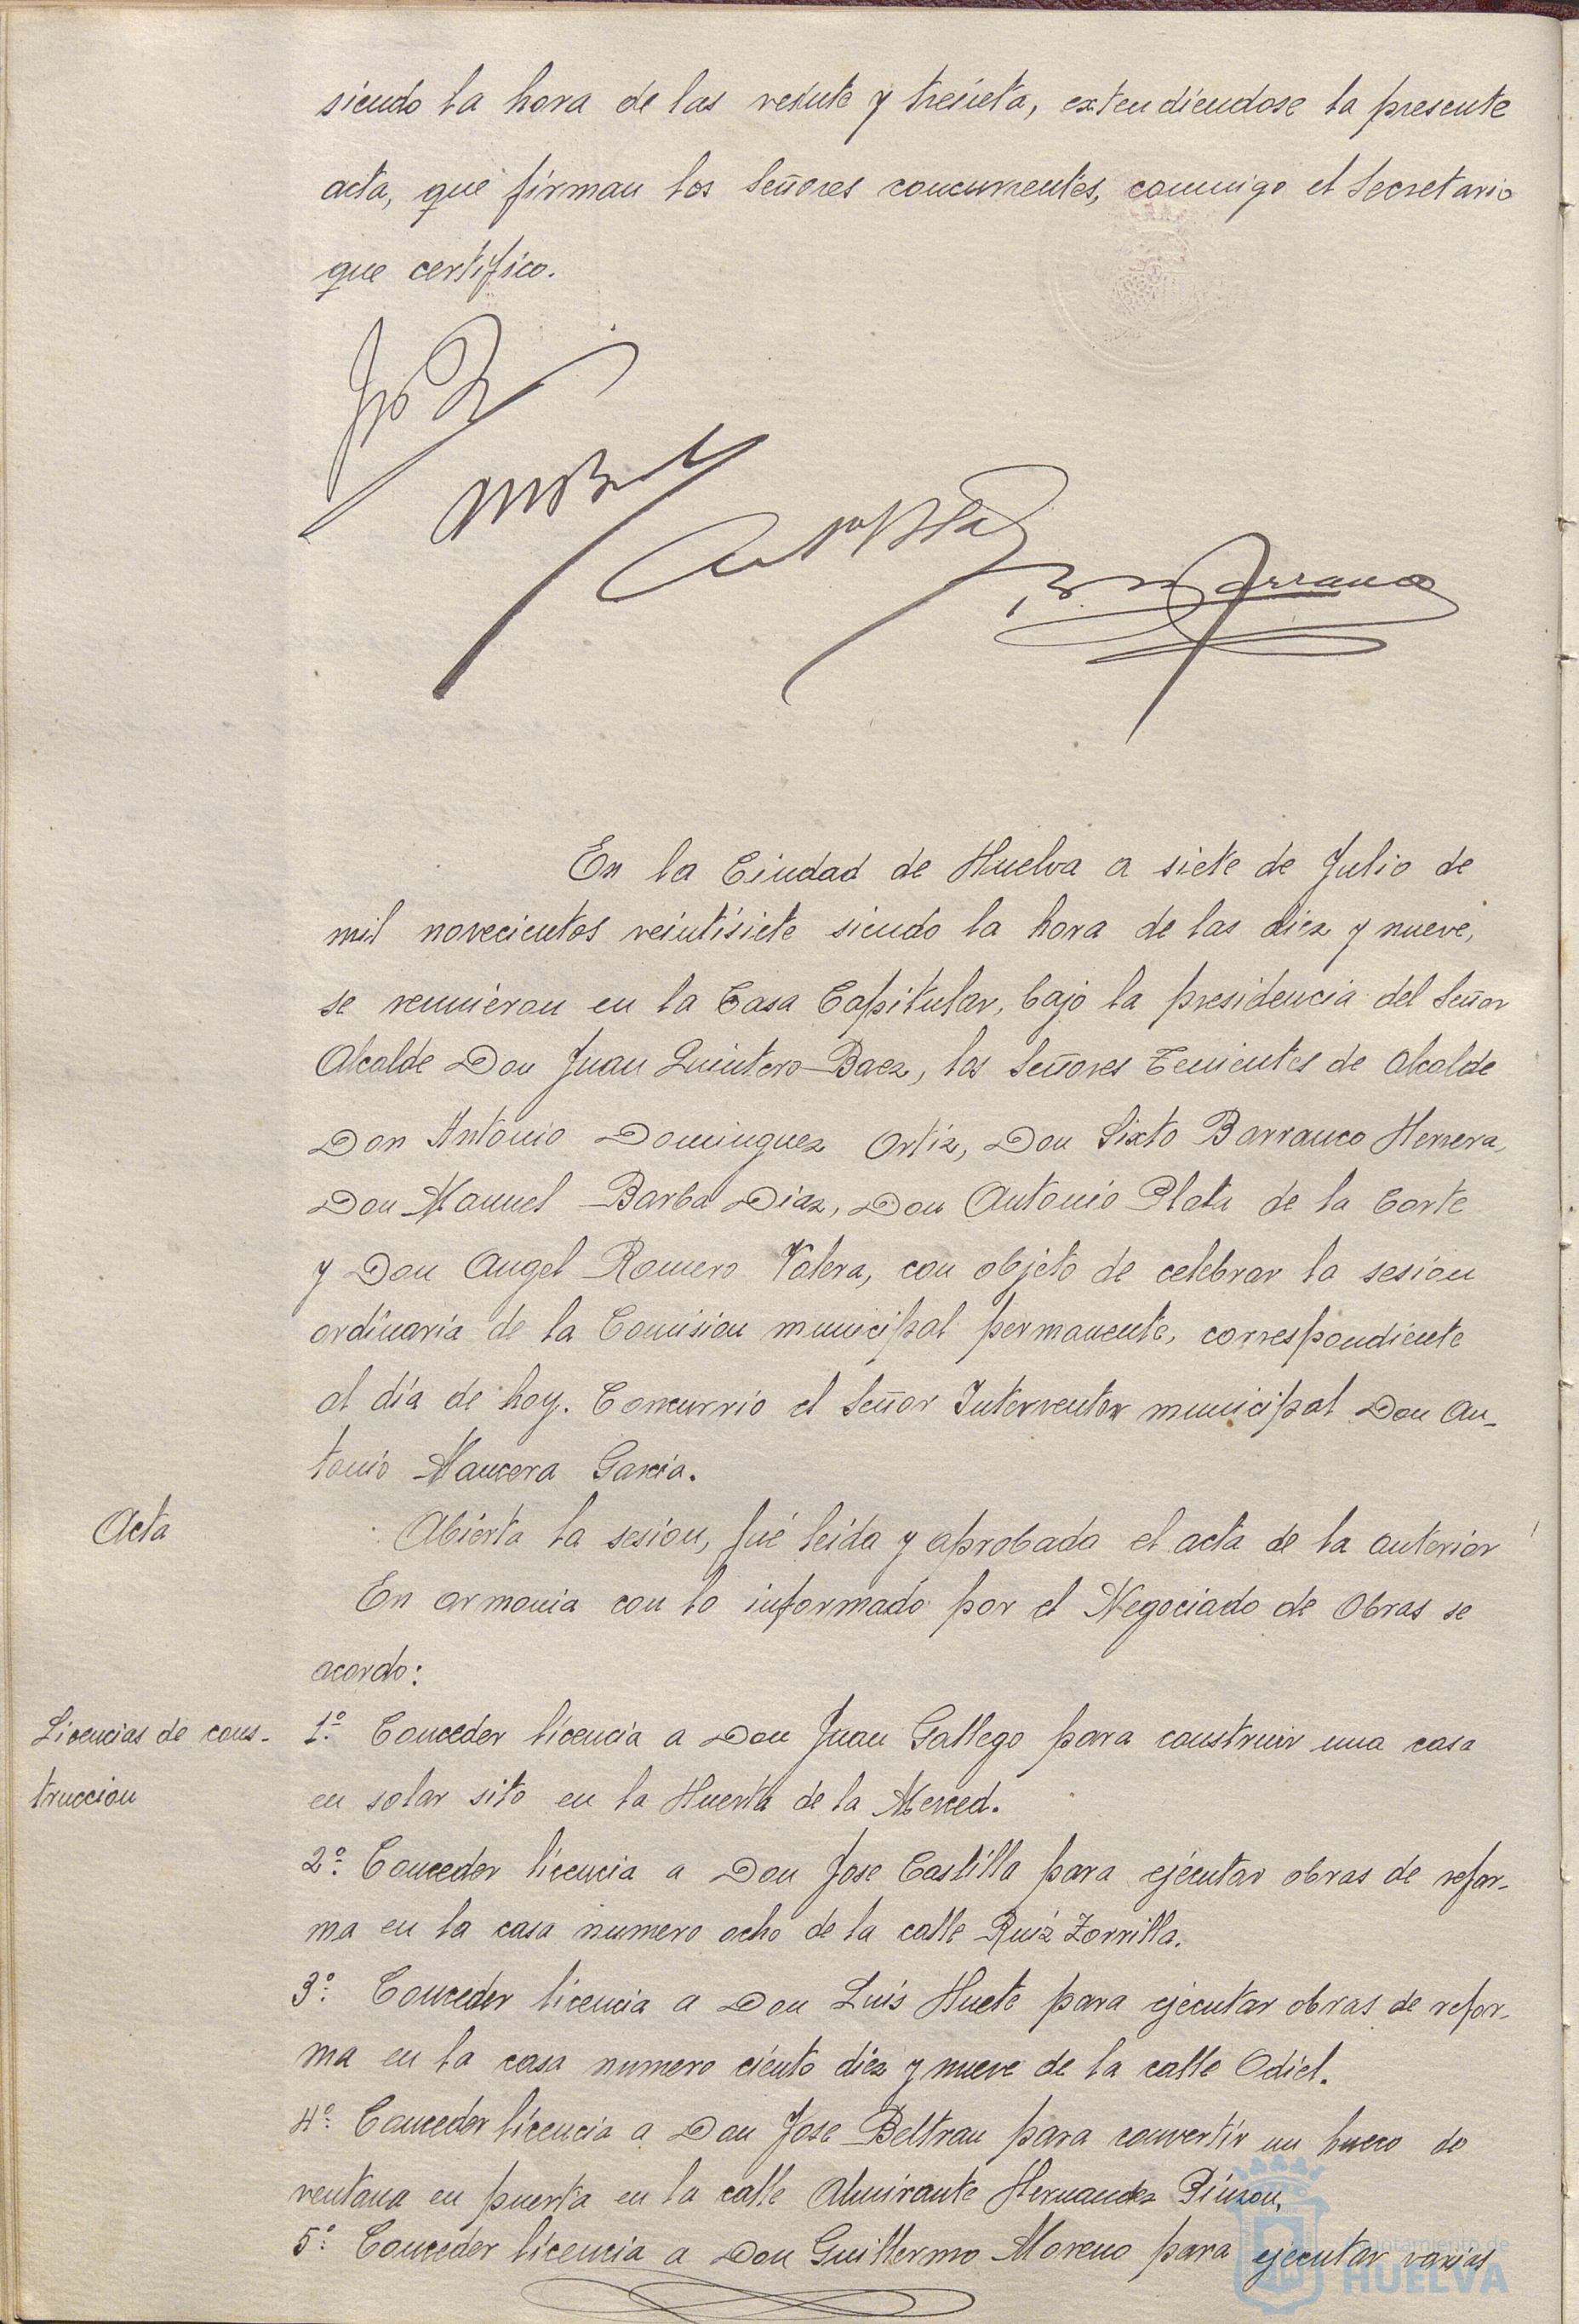 siendo la hora de las veinte y treinta, extendiendose la presente
acta, que firman los Señores concurrentes, conmigo el Secretario
que certifico.
En la Ciudad de Huelva a siete de Julio de
mil novecientos veintisiete siendo la hora de las diez y nueve,
se reunieron en la Casa Capitular, bajo la presidencia del Señor
Alcalde Don Juan Quintero Baez, los Señores Tenientes de Alcalde
Don Antonio Dominguez Ortiz, Don Sixto Barranco Herrera,
Don Manuel Barba Diaz, Don Antonio Plata de la Corte
y Don Angel Romero Valera, con objeto de celebrar la sesion
ordinaria de la Comision municipal permanente, correspondiente
al día de hoy. Concurrio el Señor Interventor municipal Don An-
tonio Mancera Garcia.
Acta
Abierta la sesion, fué leida y aprobada el acta de la anterior
En armonia con lo informado por el Negociado de Obras se
acordo:
Licencias de cons-
truccion
1º: Conceder licencia a Don Juan Gallego para construir una casa
en solar sito en la Huerta de la Merced.
2º: Conceder licencia a Don Jose Castilla para ejecutar obras de refor-
ma en la casa numero ocho de la calle Ruiz Zorrilla.
3º: Conceder licencia a Don Luis Huete para ejecutar obras de refor-
ma en la casa numero ciento diez y nueve de la calle Odiel.
4º: Conceder licencia a Don Jose Beltran para convertir un hueco de
ventana en puerta en la calle Almirante Hernandez Pinzon,
5º: Conceder licencia a Don Guillermo Moreno para ejecutar varias
Ayuntamiento de
HUELVA